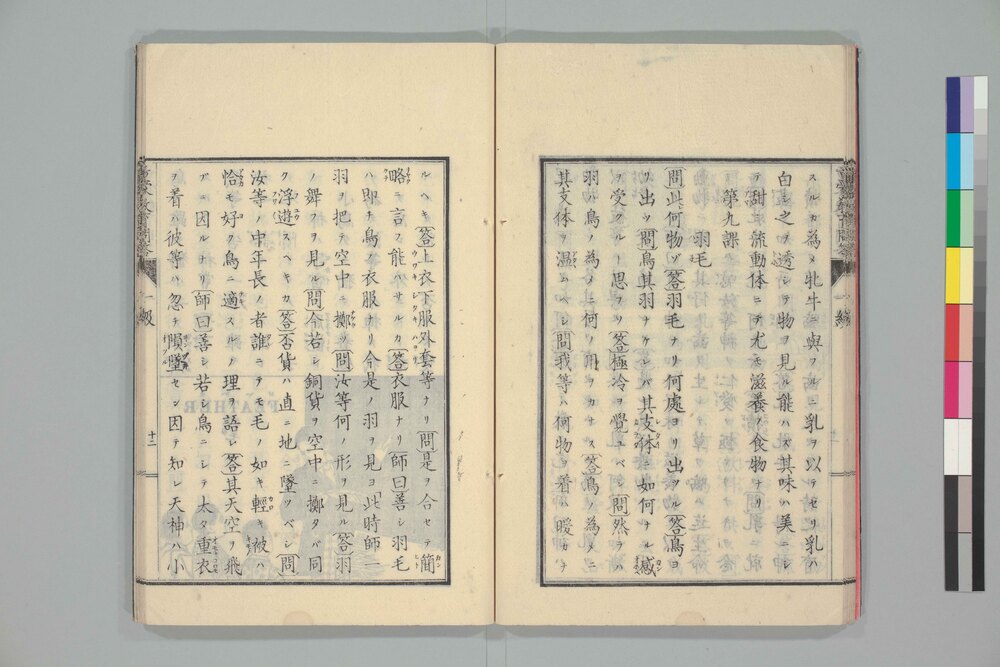 スルカ為メ牝牛ニ與フルニ乳ヲ以テセリ乳ハ
白色之ヲ透シテ物ヲ見ル能ハス其味ハ美ニシ
テ甜ク流動体ニテ尤モ滋養ノ食物ナリ
第九課 羽毛
問此何物ゾ答羽毛ナリ何處ヨリ出ヅル答鳥ヨ
リ出ツ問鳥其羽ナケレバ其支体ニ如何ナル感
ヲ受クルト思フヤ答極冷ヲ覺ユベシ問然ラハ
羽ハ鳥ノ為メニ何ノ用ヲカサス答鳥ノ為メニ
其支体ヲ温ムベシ問我等ハ何物ヲ着ハ暖カナ
ルヘキ答上衣下服外套等ナリ問是ヲ合セテ簡
略ニ言フ能ハサルカ答衣服ナリ師曰善シ羽毛
ハ即チ鳥ノ衣服ナリ今是ノ羽ヲ見ヨ此時師一
羽ヲ把テ空中ニ擲ツ問汝等何ノ形ヲ見ル答羽
ノ舞フヲ見ル問今若シ銅貨ヲ空中ニ擲タバ同
ク浮遊スヘキカ答否貨ハ直ニ地ニ墜ツベシ問
汝等ノ中年長ノ者誰ニテモ毛ノ如キ輕キ被ハ
恰モ好ク鳥ニ適スルノ理ヲ語レ答其天空ヲ飛
ブニ因ルナリ師曰善シ若シ鳥ニシテ太タ重衣
ヲ着ハ彼等ハ忽チ隕墜セン因テ知レ天神ハ小
十二